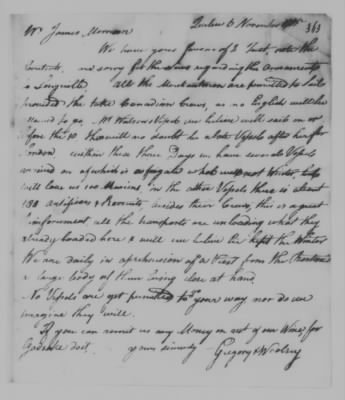 363
Mr James Morrison Quebec 6 November
We have your favour of 3 Inst. note the
Contents, are sorry for the news regarding the Armaments
a Longueille. All the Merchantmen are permitted to Sail
provided they take Canadian Crews, as no English will be
allowed to go, Mr Watsons Vessel we believe will sail on or
before the 10 there will no doubt be a late Vessel after her for
London within these three Days we have several Vessels
arrived one of which is a frigate what will not Winter, but
will leave us 100 Marines, in the other Vessels there is about
150 Artificers & Recruits besides their Crews, this is a great
reinforcement all the transports are unloading what they
already loaded here & will we believe be kept the Winter
We are daily in apprehension of a Visit from the
a large body of them being close at hand.
No Vessels are yet permitted to your way nor do we
imagine they will.
If you can remit us any Money on acct of our Wine, for
Godsake do it. yours sincerely Gregory & Woolsey